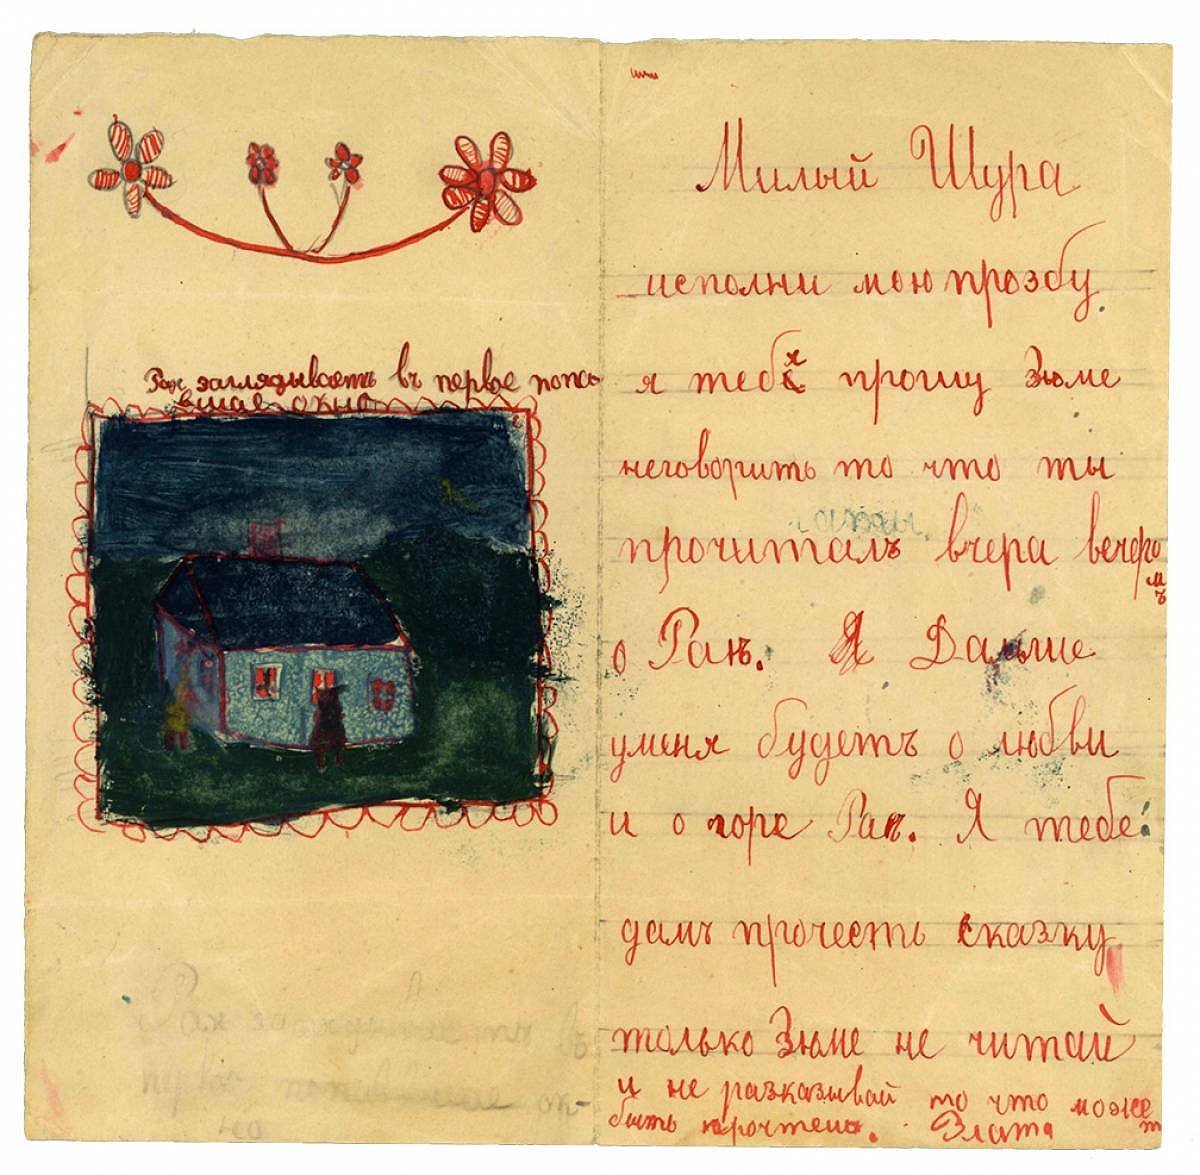 Рак заглядываетъ въ первое попа
вшае окно
Милый Шура
исполни мою прозбу
я тебя прошу Зюме
неговорить то что ты
прочиталъ вчера вечеро
мъ
о Ракъ. Я Дальше
уменя будетъ о любви
и о горе Ракъ. Я тебе
дамъ прочесть сказку
только Зюме не читай
и не разказывай то что может
быть прочтешь. Злата